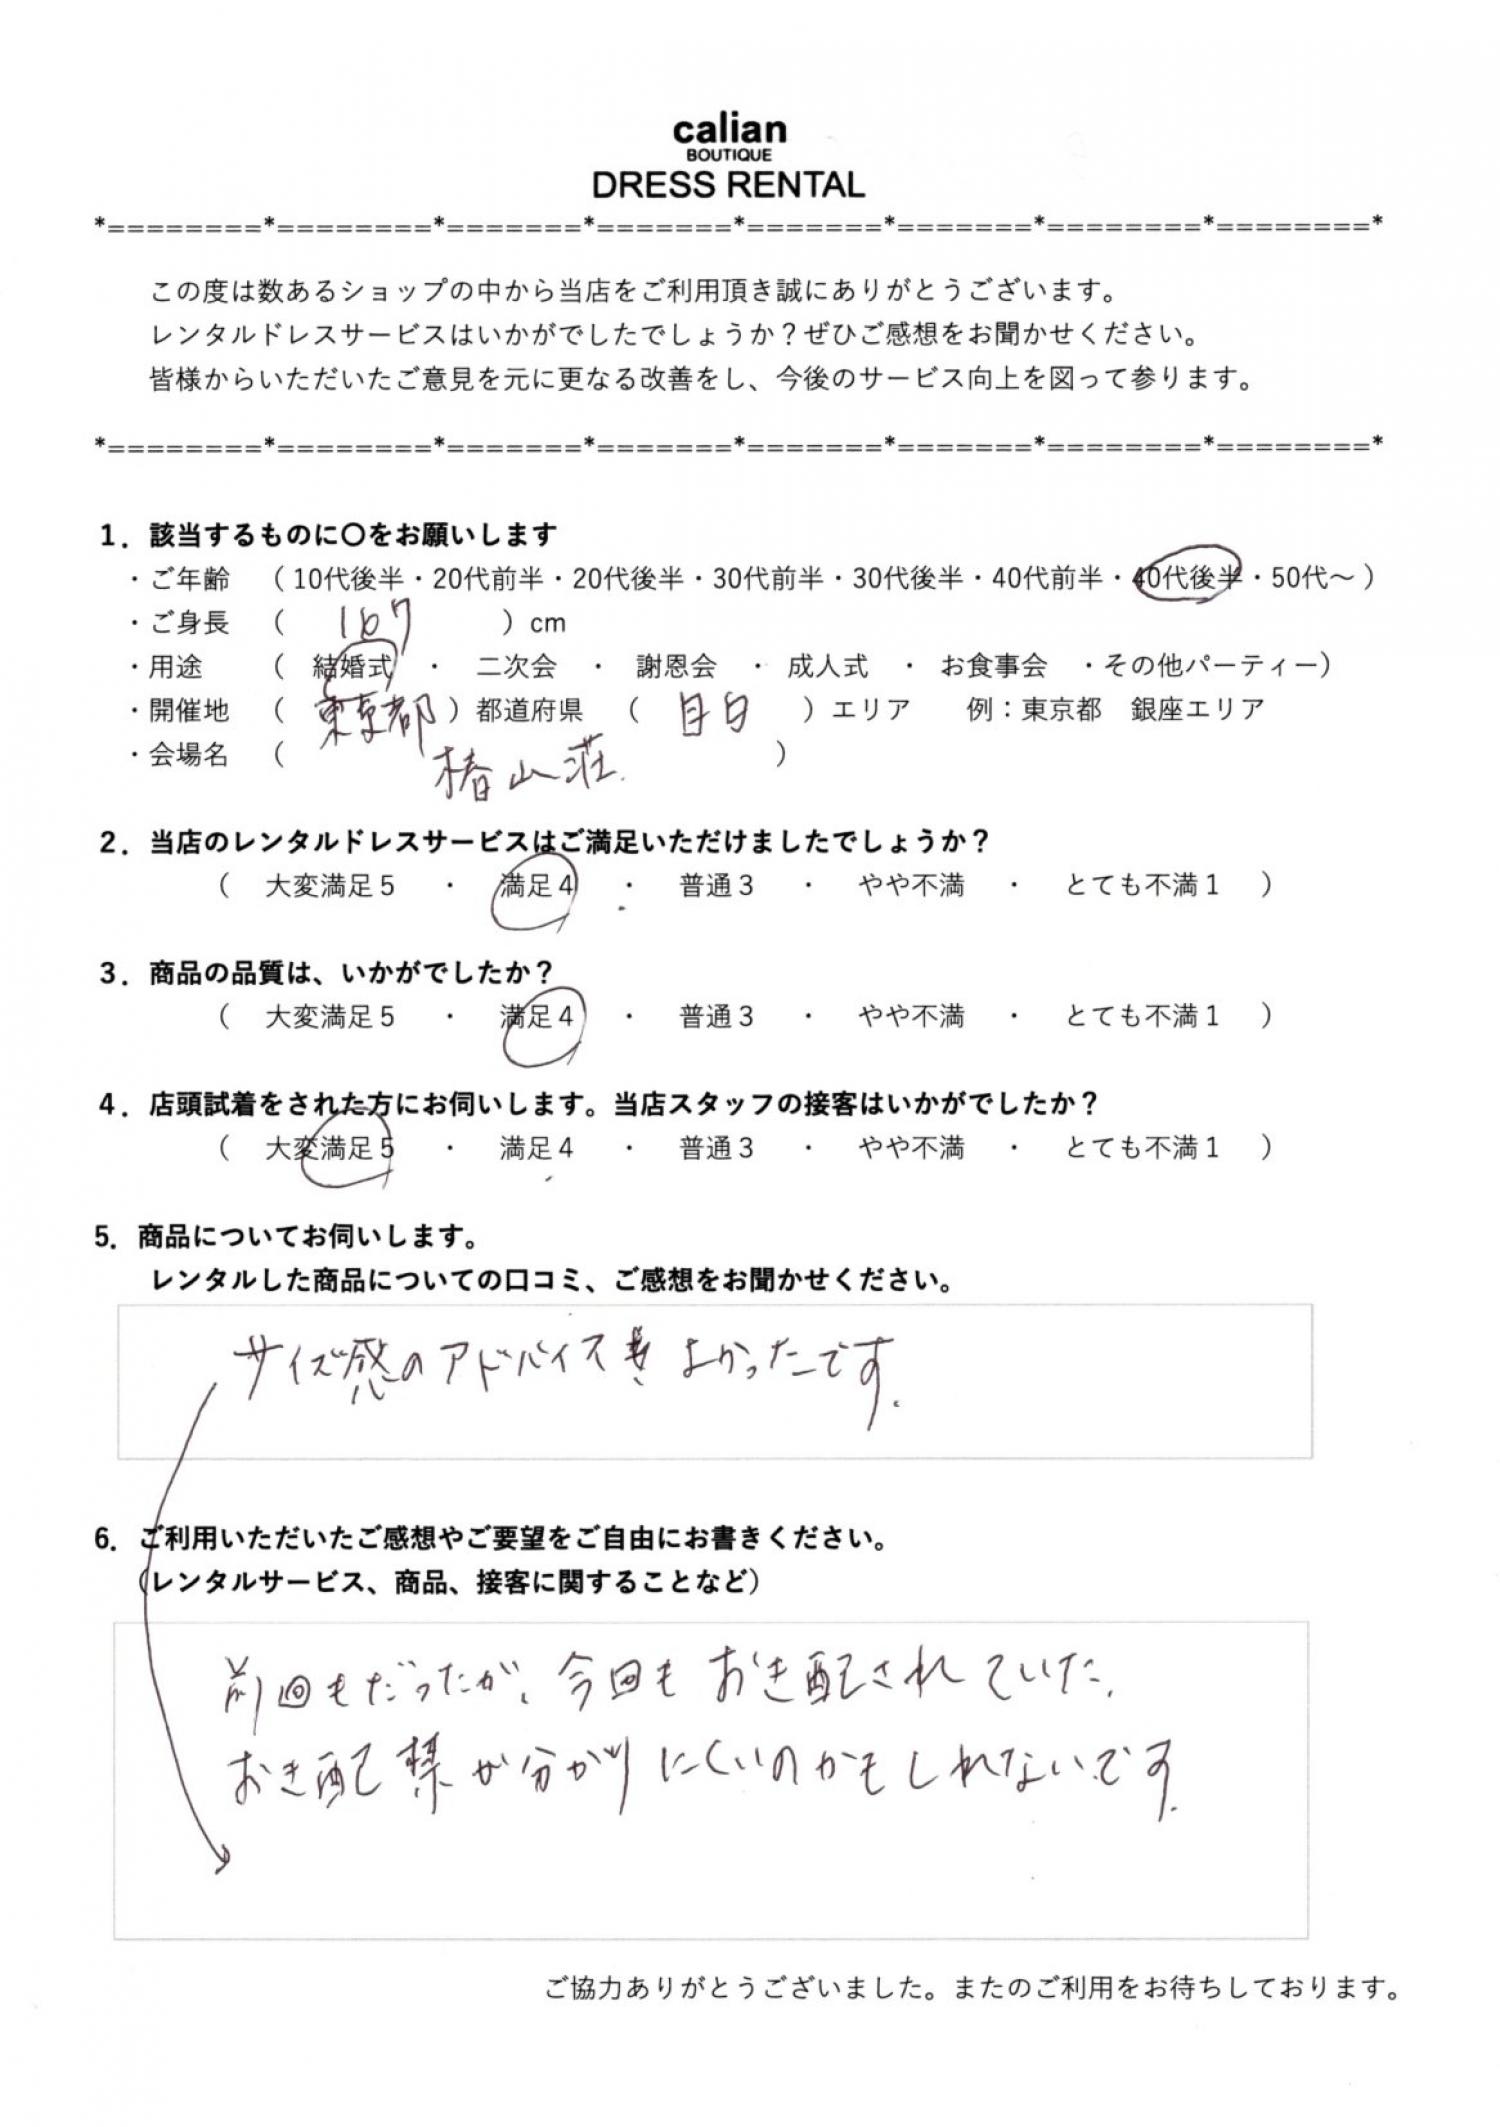 calian
BOUTIQUE
DRESS RENTAL
*========*========*=======*=======*=======*=======*========*========*
この度は数あるショップの中から当店をご利用頂き誠にありがとうございます。
レンタルドレスサービスはいかがでしたでしょうか？ぜひご感想をお聞かせください。
皆様からいただいたご意見を元に更なる改善をし、今後のサービス向上を図って参ります。
*========*========*=======*=======*=======*=======*========*========*
1．該当するものに〇をお願いします
・ご年齢 （ 10代後半・20代前半・20代後半・30代前半・30代後半・40代前半・40代後半・50代～ ）
・ご身長 （ 167 ）cm
・用途 （ 結婚式 ・ 二次会 ・ 謝恩会 ・ 成人式 ・ お食事会 ・その他パーティー）
・開催地 （ 東京都 ）都道府県 （ 目白 ）エリア 例：東京都 銀座エリア
・会場名 （ 椿山荘. ）
2．当店のレンタルドレスサービスはご満足いただけましたでしょうか？
（ 大変満足5 ・ 満足4 ・ 普通3 ・ やや不満 ・ とても不満1 ）
3．商品の品質は、いかがでしたか？
（ 大変満足5 ・ 満足4 ・ 普通3 ・ やや不満 ・ とても不満1 ）
4．店頭試着をされた方にお伺いします。当店スタッフの接客はいかがでしたか？
（ 大変満足5 ・ 満足4 ・ 普通3 ・ やや不満 ・ とても不満1 ）
5．商品についてお伺いします。
レンタルした商品についての口コミ、ご感想をお聞かせください。
サイズ感のアドバイス よかったです.
6．ご利用いただいたご感想やご要望をご自由にお書きください。
（レンタルサービス、商品、接客に関することなど）
前回もだったが、今回も おき配されていた.
おき配禁が分かりにくいのかもしれないです.
ご協力ありがとうございました。またのご利用をお待ちしております。